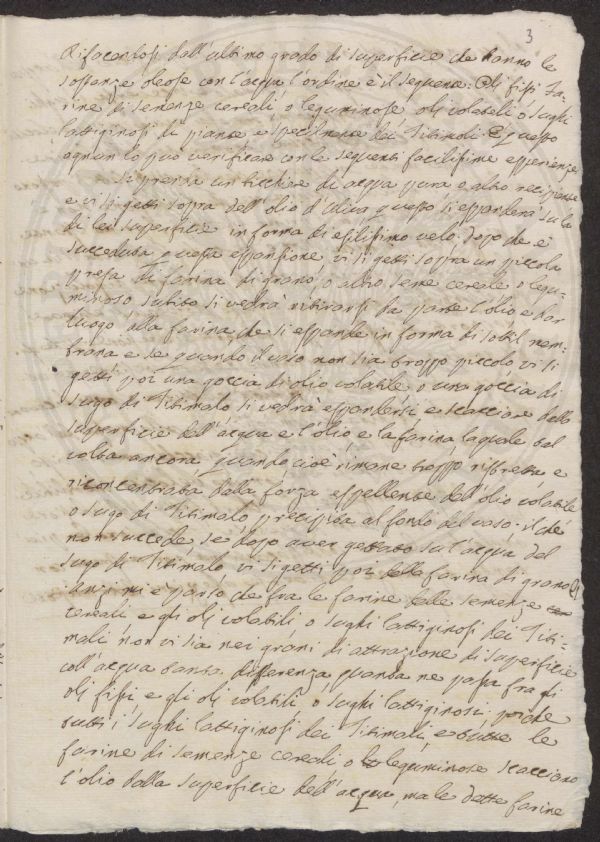 3
Rifacendosi dall'ultimo grado di superficie che hanno le
sostanze oleose con l'acqua l'ordine è il seguente: Oli fissi fa-
rine di semenze cereali, o leguminose, oli volatili o sughi
lattiginosi di piante e specialmente dei Titimali. E questo
ognun lo può verificare con le seguenti facilissime esperienze
Si prenda un bicchiere di acqua pura o altro recipiente
e vi si getti sopra dell'olio d'oliva questo si espanderà su la
di lei superficie in forma di esilissimo velo. Dopo che è
succeduta questa espansione vi si getti sopra un piccola
presa di farina di grano, o altro seme cereale o legu-
minoso subito si vedrà ritirarsi da parte l'olio e dar
luogo alla farina, che si espande in forma di sottil mem-
brana e se quando il vaso non sia troppo piccolo, vi si
getti poi una goccia di olio volatile, o una goccia di
sugo di Titimalo si vedrà espandersi e scacciare dalla
superficie dell'acqua e l'olio, e la farina, la quale tal
volta ancora, quando, cioè rimane troppo ristretta, e
riconcentrata dalla forza espellente dell'olio volatile
o sugo di Titimalo, precipita al fondo del vaso: il che
non succede, se dopo aver gettato su l'acqua del
sugo di Titimalo, vi si getti poi della farina di grano
Anzi mi è parso che fra le farine delle semenze
cereali, e gli oli volatili o sughi lattiginosi dei Titi-
mali, non vi sia nei gradi di attrazione di superficie
coll'acqua tanta differenza quanta ne passa fra gli
oli fissi, e gli oli volatili o sughi lattiginosi; poiché
tutti i sughi lattiginosi dei Titimali, e tutte le
farine di semenze cereali o leguminose scacciano
l'olio dalla superficie dell'acqua, ma le dette farine